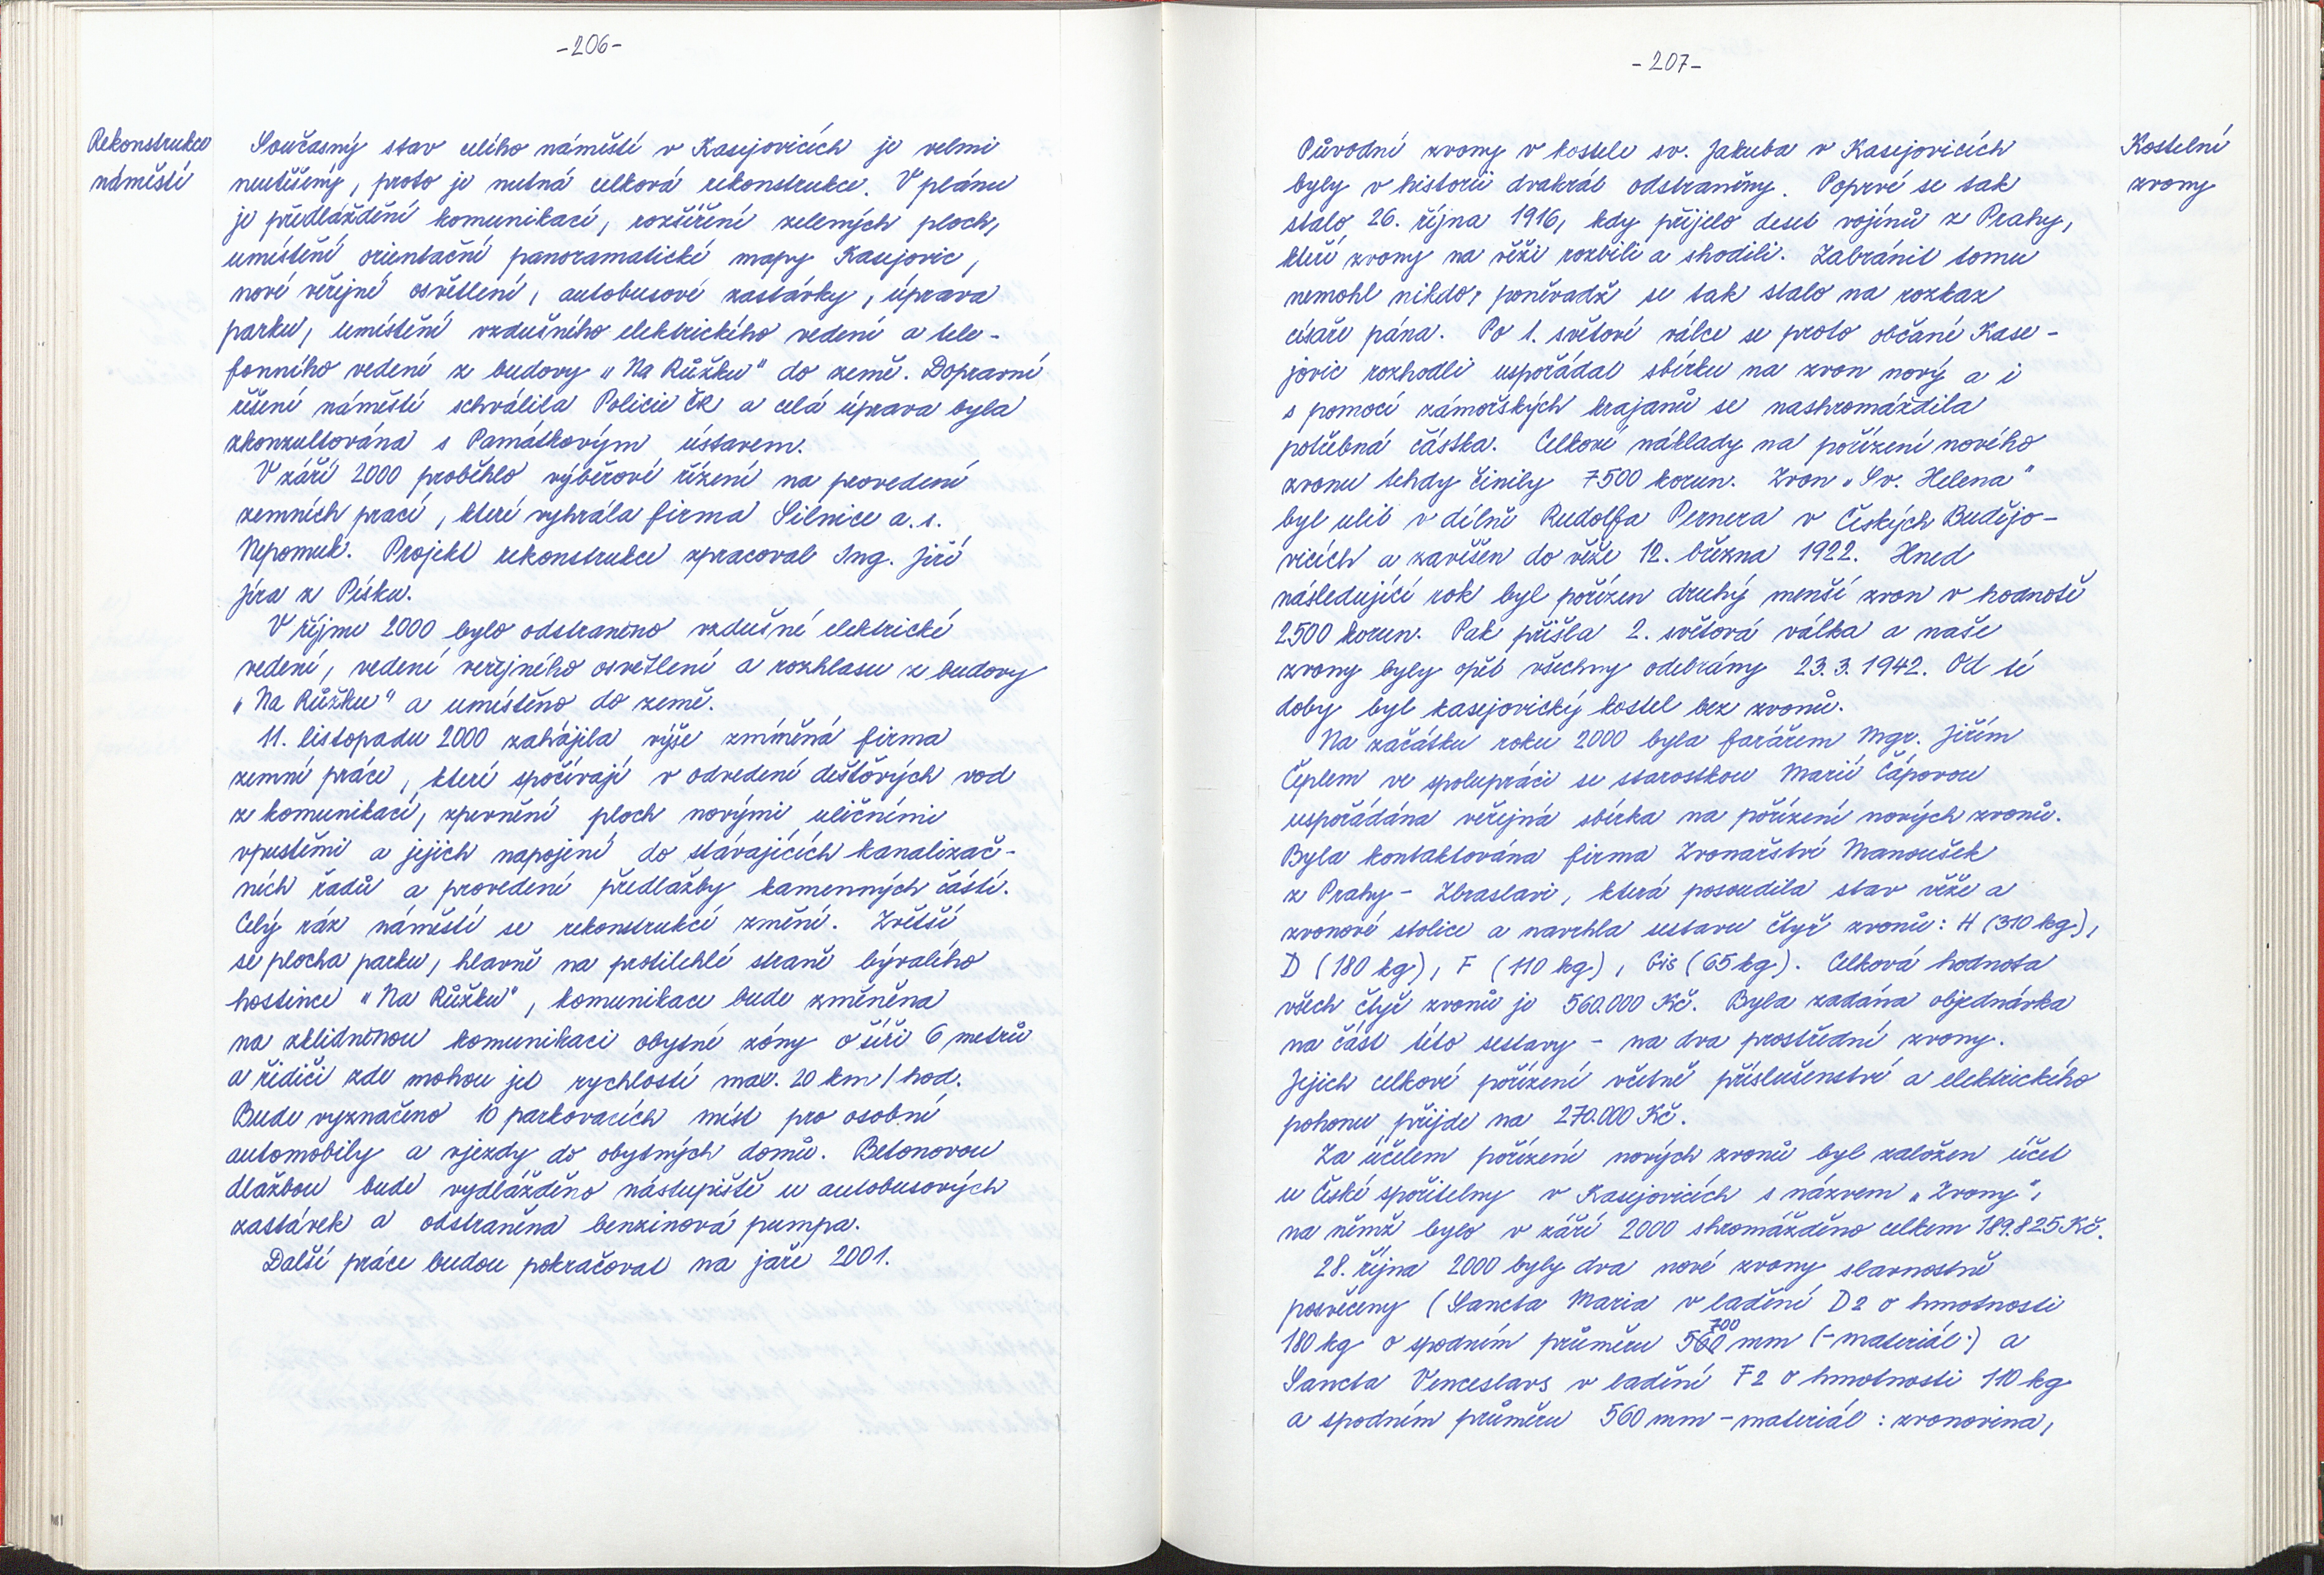 -206-
Rekonstrukce
náměstí
Současný stav celého náměstí v Kasejovicích je velmi
neutěšený, proto je nutná celková rekonstrukce. V plánu
je předláždění komunikací, rozšíření zelených ploch,
umístění orientační panoramatické mapy Kasejovic,
nové veřejné osvětlení, autobusové zastávky, úprava
parku, umístění vzdušného elektrického vedení a tele-
fonního vedení z budovy „Na Růžku" do země. Dopravní
řešení náměstí schválila Policie ČR a celá úprava byla
zkonzultována s Památkovým ústavem.
V září 2000 proběhlo výběrové řízení na provedení
zemních prací, které vyhrála firma Silnice a.s.
Nepomuk. Projekt rekonstrukce zpracoval Ing. Jiří
Jíra z Písku.
V říjnu 2000 bylo odstraněno vzdušné elektrické
vedení, vedení veřejného osvětlení a rozhlasu z budovy
„Na Růžku" a umístěno do země.
11. listopadu 2000 zahájila výše zmíněná firma
zemní práce, které spočívají v odvedení dešťových vod
z komunikací, zpevnění ploch novými uličními
vpustěmi a jejich napojení do stávajících kanalizač-
ních řadů a provedení předlažby kamenných částí.
Celý ráz náměstí se rekonstrukcí změní. Zvětší
se plocha parku, hlavně na protilehlé straně bývalého
hostince „Na Růžku", komunikace bude změněna
na zklidněnou komunikaci obytné zóny o šíři 6 metrů
a řidiči zde mohou jet rychlostí max. 20 km/hod.
Bude vyznačeno 10 parkovacích míst pro osobní
automobily a vjezdy do obytných domů. Betonovou
dlažbou bude vydlážděno nástupiště u autobusových
zastávek a odstraněna benzinová pumpa.
Další práce budou pokračovat na jaře 2001.
-207-
Kostelní
zvony
Původní zvony v kostele sv. Jakuba v Kasejovicích
byly v historii dvakrát odstraněny. Poprvé se tak
stalo 26. října 1916, kdy přijelo deset vojínů z Prahy,
kteří zvony na věži rozbili a shodili. Zabránit tomu
nemohl nikdo, poněvadž se tak stalo na rozkaz
císaře pána. Po 1. světové válce se proto občané Kase-
jovic rozhodli uspořádat sbírku na zvon nový a i
s pomocí zámořských krajanů se nashromáždila
potřebná částka. Celkové náklady na pořízení nového
zvonu tehdy činily 7500 korun. Zvon „Sv. Helena"
byl ulit v dílně Rudolfa Pernera v Českých Budějo-
vicích a zavěšen do věže 12. března 1922. Hned
následující rok byl pořízen druhý menší zvon v hodnotě
2500 korun. Pak přišla 2. světová válka a naše
zvony byly opět všechny odebrány 23.3.1942. Od té
doby byl kasejovický kostel bez zvonů.
Na začátku roku 2000 byla farářem Mgr. Jiřím
Čeplem ve spolupráci se starostkou Marií Čápovou
uspořádána veřejná sbírka na pořízení nových zvonů.
Byla kontaktována firma Zvonařství Manoušek
z Prahy - Zbraslavi, která posoudila stav věže a
zvonové stolice a navrhla sestavu čtyř zvonů: H (310 kg),
D (180 kg), F (110 kg), Gis (65 kg). Celková hodnota
všech čtyř zvonů je 560.000 Kč. Byla zadána objednávka
na část této sestavy - na dva prostřední zvony.
Jejich celkové pořízení včetně příslušenství a elektrického
pohonu přijde na 270.000 Kč.
Za účelem pořízení nových zvonů byl založen účet
u České spořitelny v Kasejovicích s názvem „Zvony",
na němž bylo v září 2000 shromážděno celkem 189.825 Kč.
28. října 2000 byly dva nové zvony slavnostně
posvěceny (Sancta Maria v ladění D2 o hmotnosti
180 kg o spodním průměru 560 700 mm (-materiál:) a
Sancta Venceslavs v ladění F2 o hmotnosti 110 kg
a spodním průměru 560 mm - materiál: zvonovina,